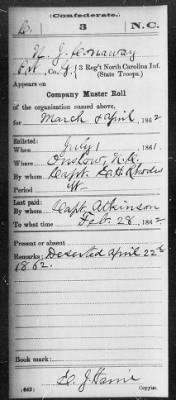 Confederate.
3 N.C.
Pvt, Co. G, 3 Reg't North Carolina Inf.
(State Troops.)
Appears on
Company Muster Roll
of the organization named above,
for March & April, 1862
Enlisted:
When July 1, 1861.
Where Onslow, N.C.
By whom Capt. E. H. Rhodes
Period
Last paid:
By whom Capt. Atkinson
To what time Feb. 28, 1862
Present or absent
Remarks: Deserted April 22d
1862.
Book mark:
(642) Copyist.